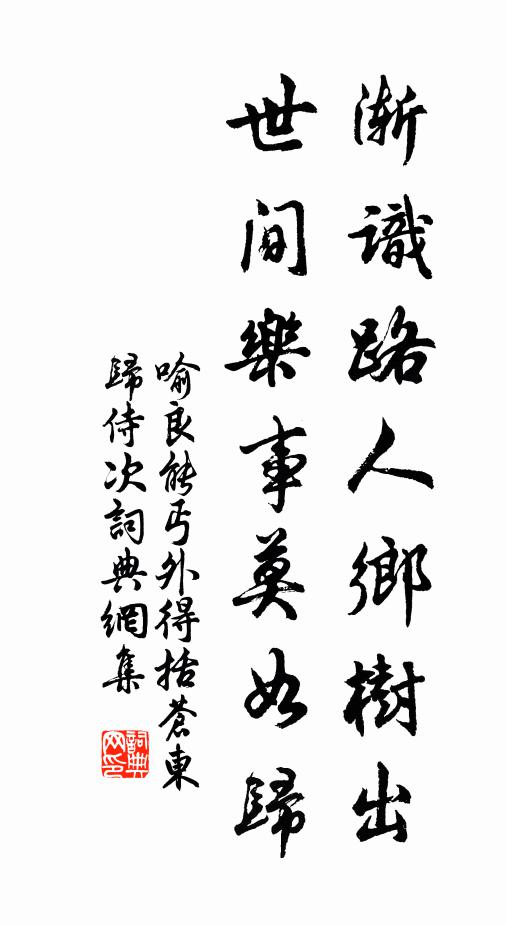 漸識路人鄉樹出
世間樂事莫如歸
喻良能丐外得括蒼東
歸侍次詞典網集
詞典
网印